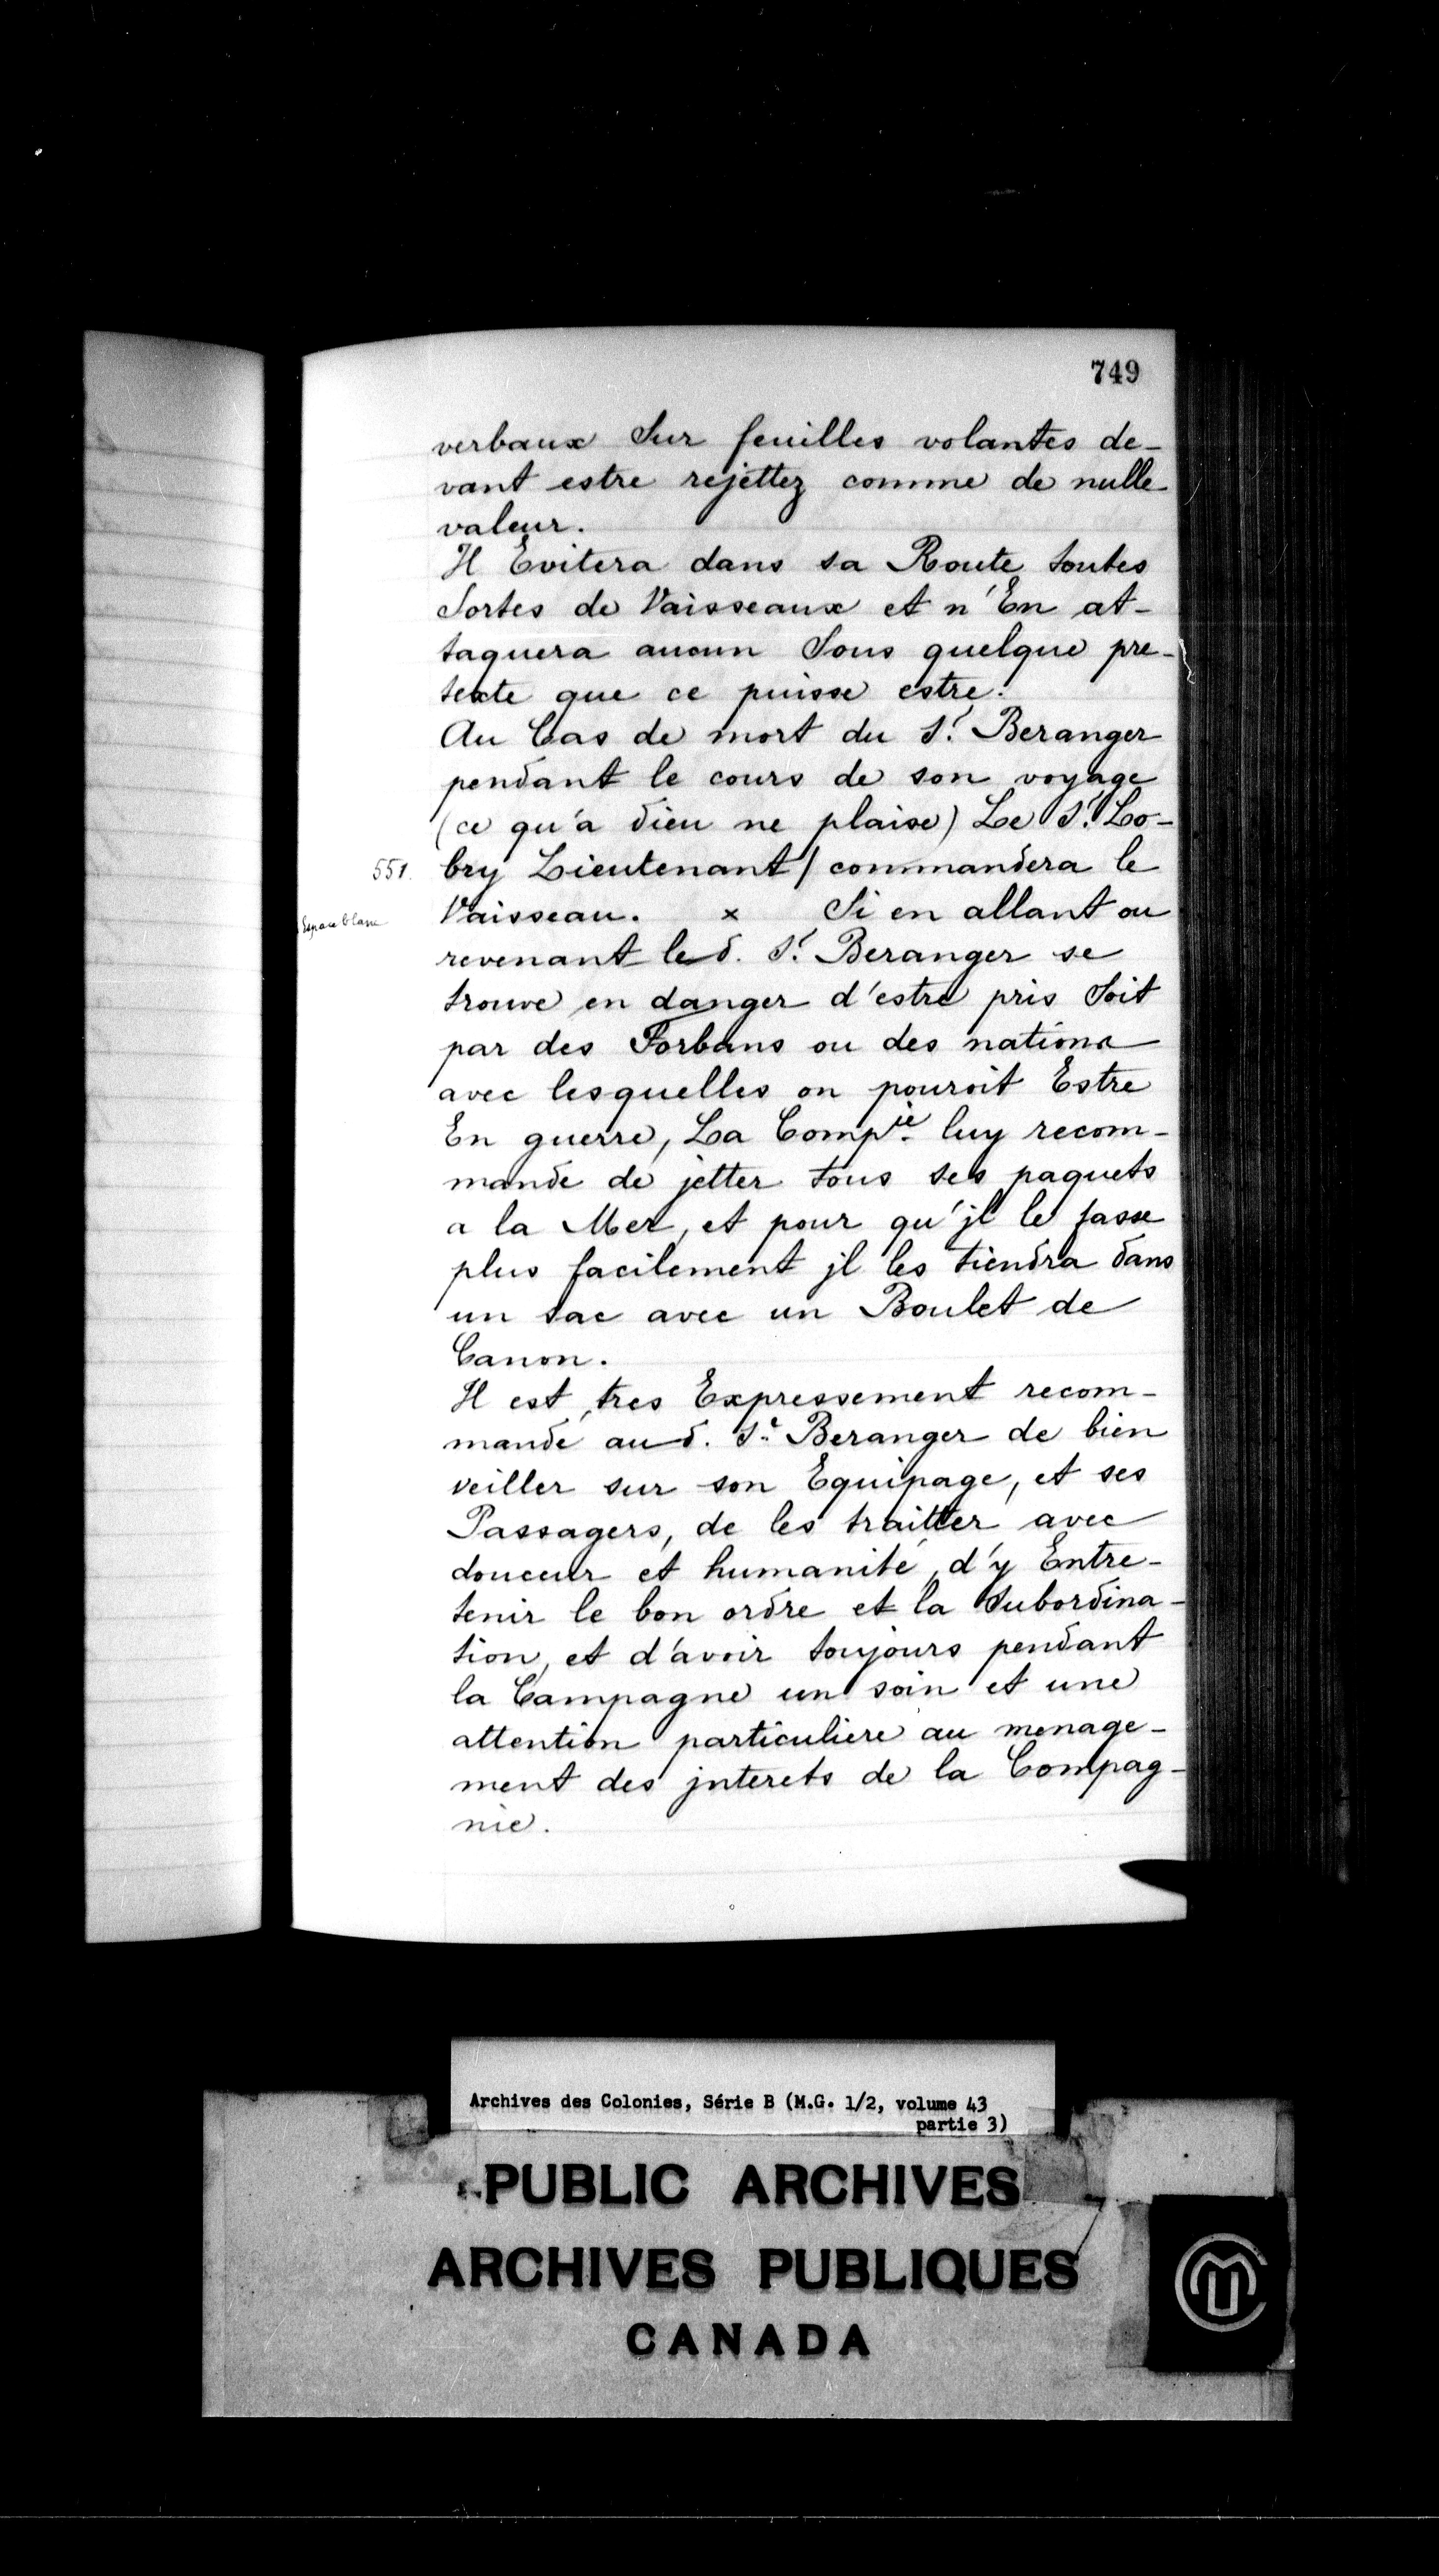 749
verbaux Sur feuilles volantes de-
vant estre rejettez comme de nulle
valeur.
Il Evitera dans sa Route toutes
Sortes de Vaisseaux et n'En at-
taquera aucun Sous quelque pre-
texte que ce puisse estre.
Au Cas de mort du Sr. Beranger
pendant le cours de son voyage
(ce qu'a dieu ne plaise) Le Sr. Lo-
551. bry Lieutenant / commandera le
Espace blanc Vaisseau. x Si en allant ou
revenant led. Sr. Beranger se
trouve en danger d'estre pris Soit
par des Forbans ou des nations
avec lesquelles on pouroit Estre
En guerre, La Compie. luy recom-
mande de jetter tous ses paquets
a la Mer, et pour qu'jl le fasse
plus facilement jl les tiendra dans
un sac avec un Boulet de
Canon.
Il est tres Expressement recom-
mandé aud. Sr. Beranger de bien
veiller sur son Equipage, et ses
Passagers, de les traitter avec
douceur et humanité, d'y Entre-
tenir le bon ordre et la Subordina-
tion, et d'avoir toujours pendant
la Campagne un soin et une
attention particuliere au menage-
ment des jnterets de la Compag-
nie.
Archives des Colonies, Série B (M.G. 1/2, volume 43
partie 3)
PUBLIC ARCHIVES
ARCHIVES PUBLIQUES
CANADA